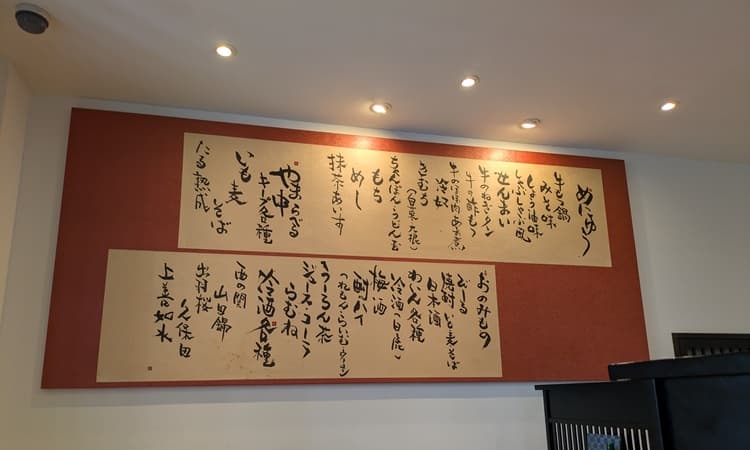 めにゅう
牛もつ鍋
みそ味
しょうゆ味
しゃぶしゃぶ風
せんまい
牛のねぎタン
牛の酢もつ
牛のほほ肉
冷奴
きむち
(白菜 大根)
ちゃんぽん・うどん玉
もち
めし
抹茶あいす
やきゅうべる
キープ各種
いも 麦 そば
たる熟成
おのみもの
びーる
焼酎 いも 麦 そば
日本酒
わいん各種
冷酒(白鹿)
梅酒
酎ハイ
(れもん・らいむ・ウーロン)
うーろん茶
ジュース・コーラ
らむね
冷酒各種
西の関
山田錦
出羽桜
久保田
上善如水